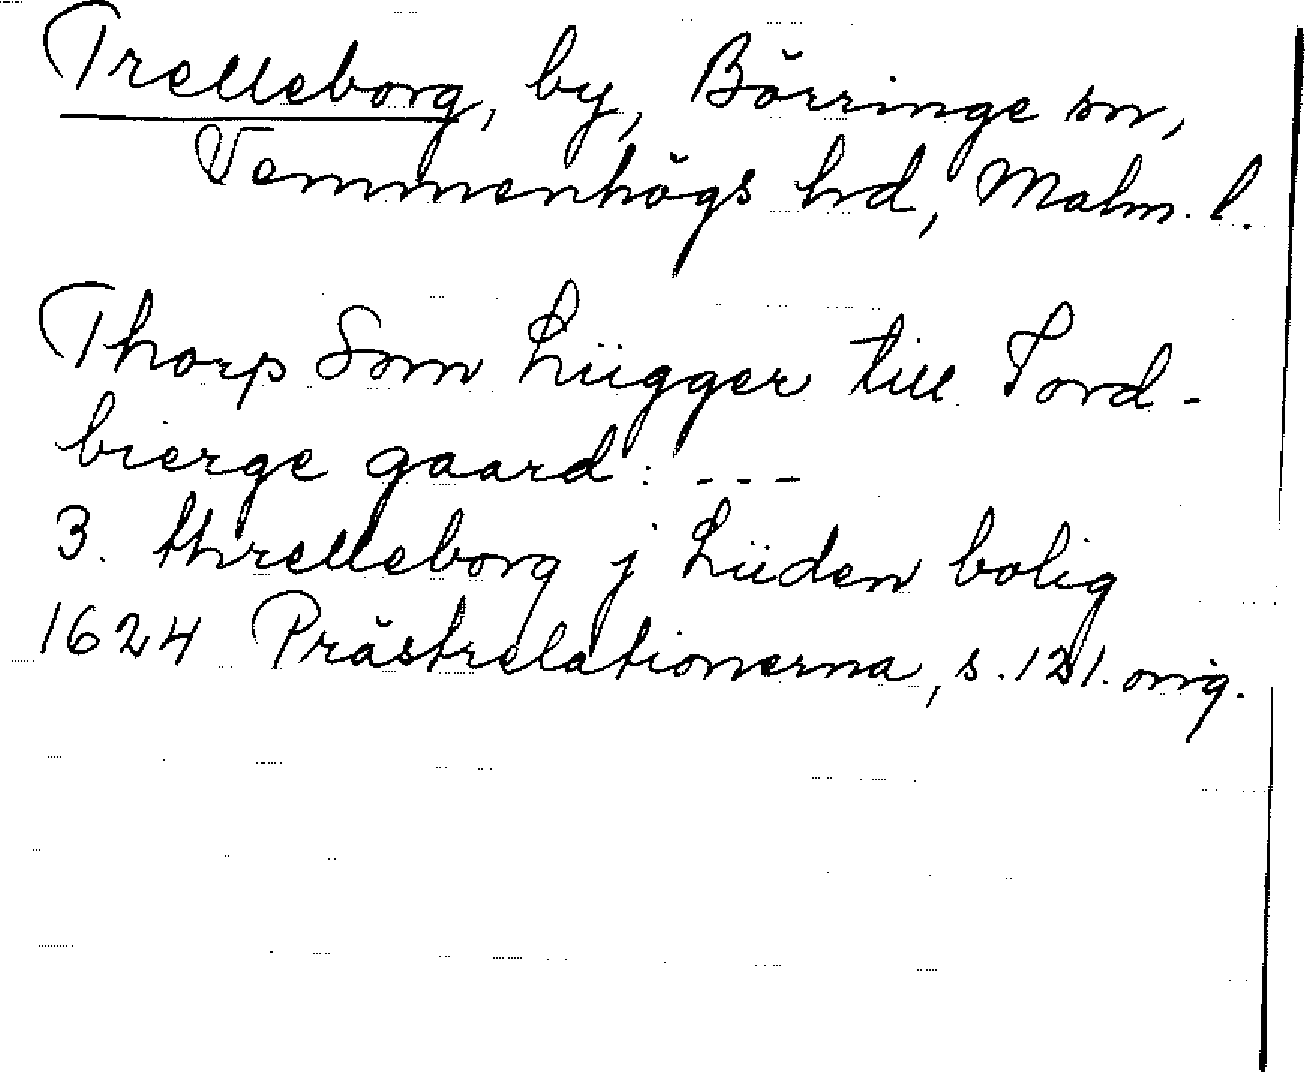 Trelleborg, by, Börringe sn,
Vemmenhögs hd, Malm. l.
Thorp Som Liigger till Tord-
bierge gaard: ---
3. threlleborg j Liiden bolig
1624 Prästrelationerna, s. 121. orig.